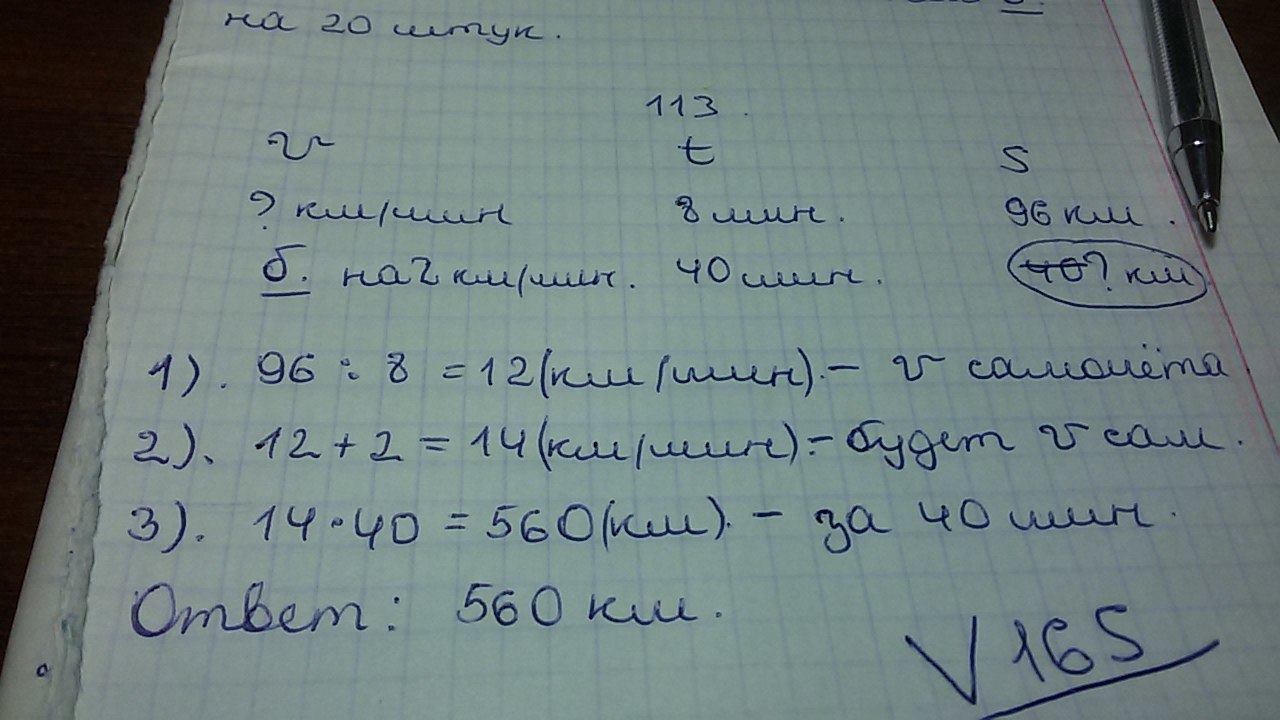 на 20 штук. б.
113.
v t S
? км/мин 8 мин. 96 км.
б. на 2 км/мин. 40 мин. 40? км
1). 96 : 8 = 12(км/мин).- v самолёта
2). 12 + 2 = 14(км/мин)- будет v сам.
3). 14 · 40 = 560(км). - за 40 мин.
Ответ: 560 км.
√165